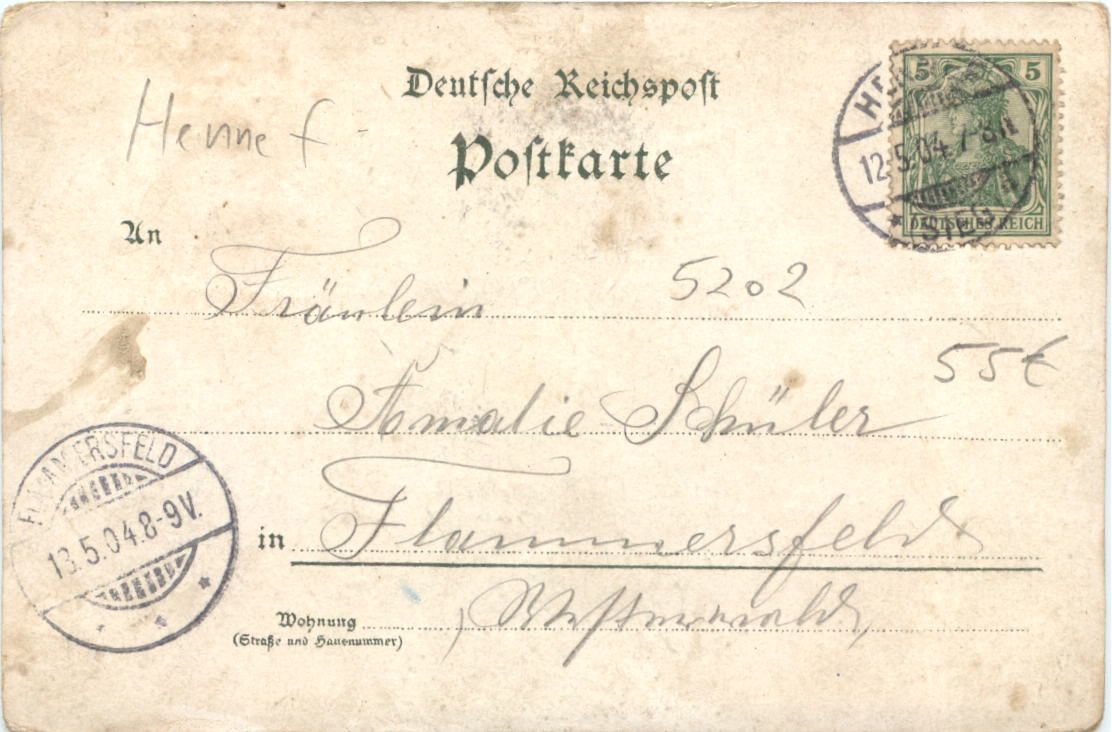 Deutsche Reichspost
Postkarte
Hennef
5 5
DEUTSCHES REICH
12.5.04. 7-8 N
SIEG
An
Fräulein
5202
55€
Amalie Schüler
in Flammersfeld
(Westerwald)
Wohnung
(Straße und Hausnummer)
FLAMMERSFELD
13.5.04.8-9V.